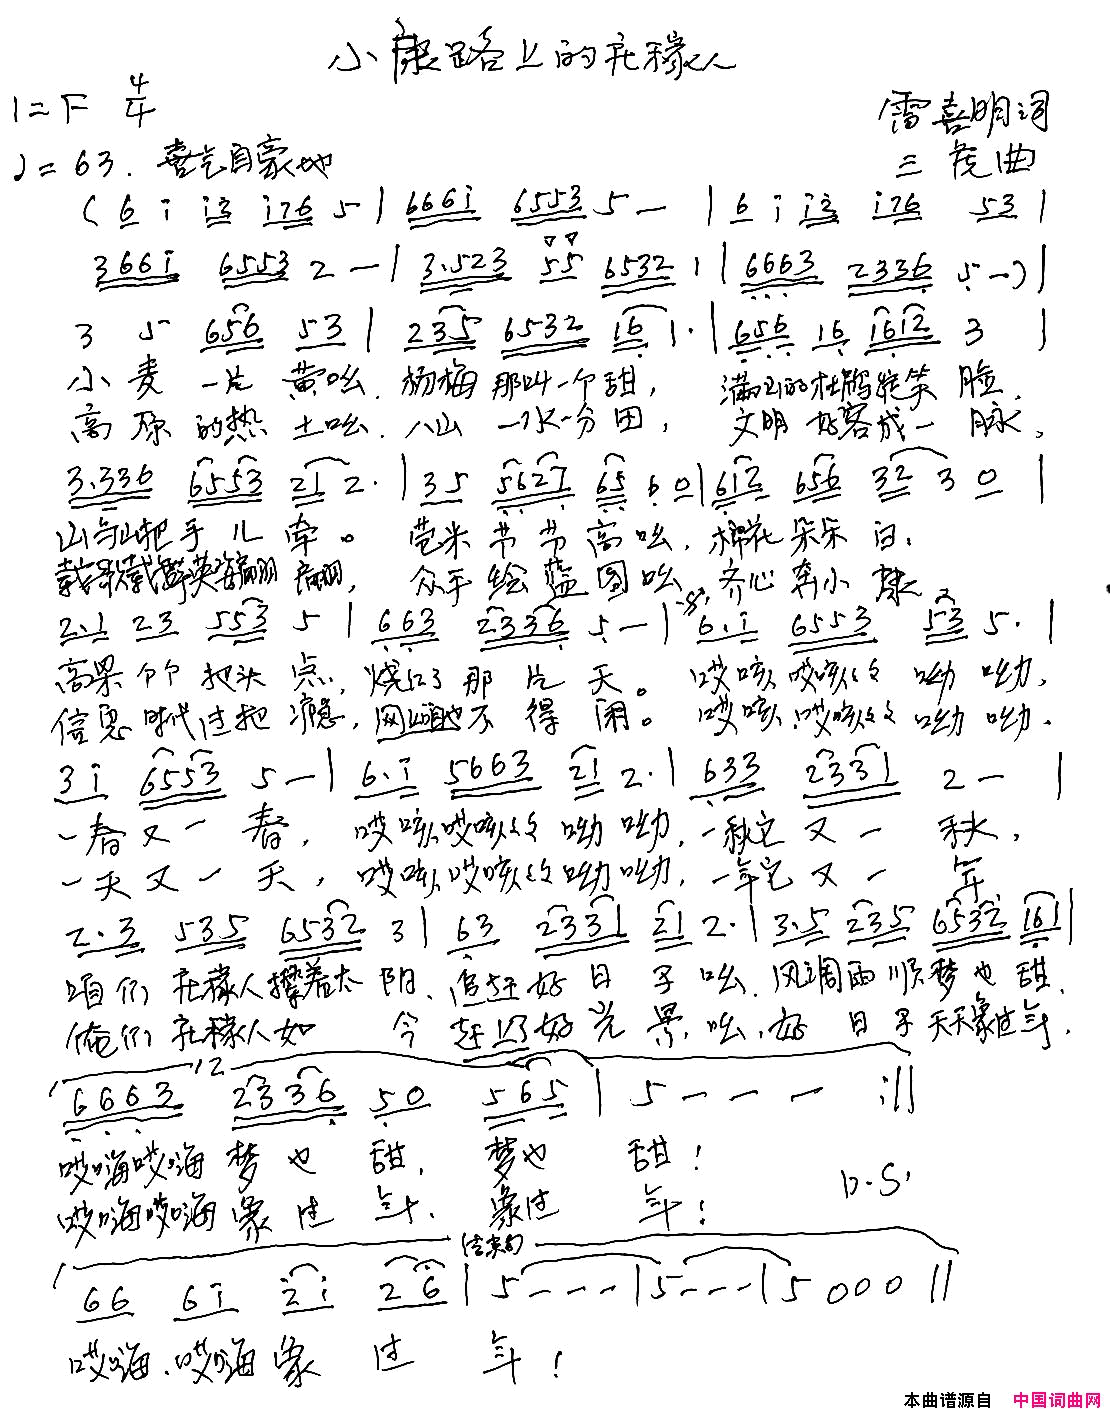 小康路上的庄稼人
1=F 4/4
雷喜明词
♩=63. 喜气自豪地
三虎曲
( 6 i i2 i76 5 | 666i 6553 5 — | 6 i i2 i76 53 |
366i 6553 2 — | 3.523 55 6532 1 | 6663 2336 5 —) |
3 5 656 53 | 235 6532 16 1. | 656 16 1612 3 |
小麦一片黄吆.杨梅那叫一个甜, 满山的杜鹃绽笑脸.
高原的热土吆.八山一水一分田, 文明好客成一脉、
3.336 6553 21 2. | 35 5627 65 60 | 612 656 32 3 0 |
山与山把手儿牵。 苞米节节高吆,棉花朵朵白.
载歌载舞英姿翩翩, 众手绘蓝图吆 齐心奔小康
2.1 23 553 5 | 663 2336 5 — | 6.i 6553 53 5. |
高粱个个把头点,烧红了那片天。 哎咳哎咳哎呦呦,
信息时代过把瘾,网购也不得闲。 哎咳.哎咳哎呦呦.
3i 6553 5 — | 6.i 5663 21 2. | 633 2331 2 — |
一春又一春, 哎咳哎咳哎呦呦,一秋它又一秋,
一天又一天, 哎咳哎咳哎呦呦,一年它又一年
2.3 535 6532 3 | 63 2331 21 2. | 3.5 235 6532 161 |
咱们庄稼人撵着太阳、追赶好日子吆.风调雨顺梦也甜.
俺们庄稼人如今赶上了好光景,吆,好日子天天象过年.
1 2
6663 2336 50 565 | 5 — — — :||
哎嗨哎嗨梦也甜, 梦也甜!
哎嗨哎嗨象过年. 象过年! D.S.
结束句
66 6i 2i 26 | 5 — — — | 5 — — — | 5 0 0 0 ||
哎嗨.哎嗨象过年!
本曲谱源自 中国词曲网